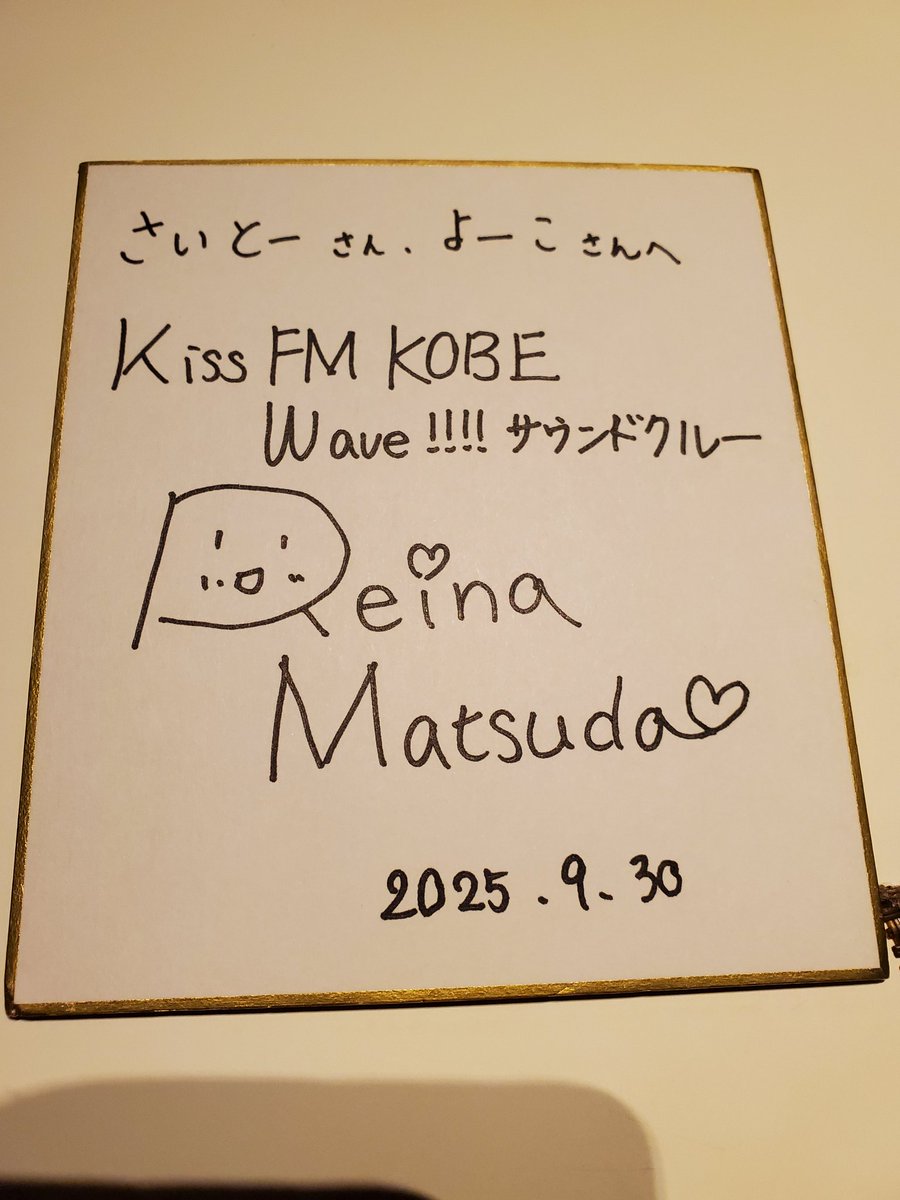 さいとーさん、よーこさんへ
Kiss FM KOBE
Wave!!!! サウンドクルー
Reina
Matsuda♡
2025.9.30